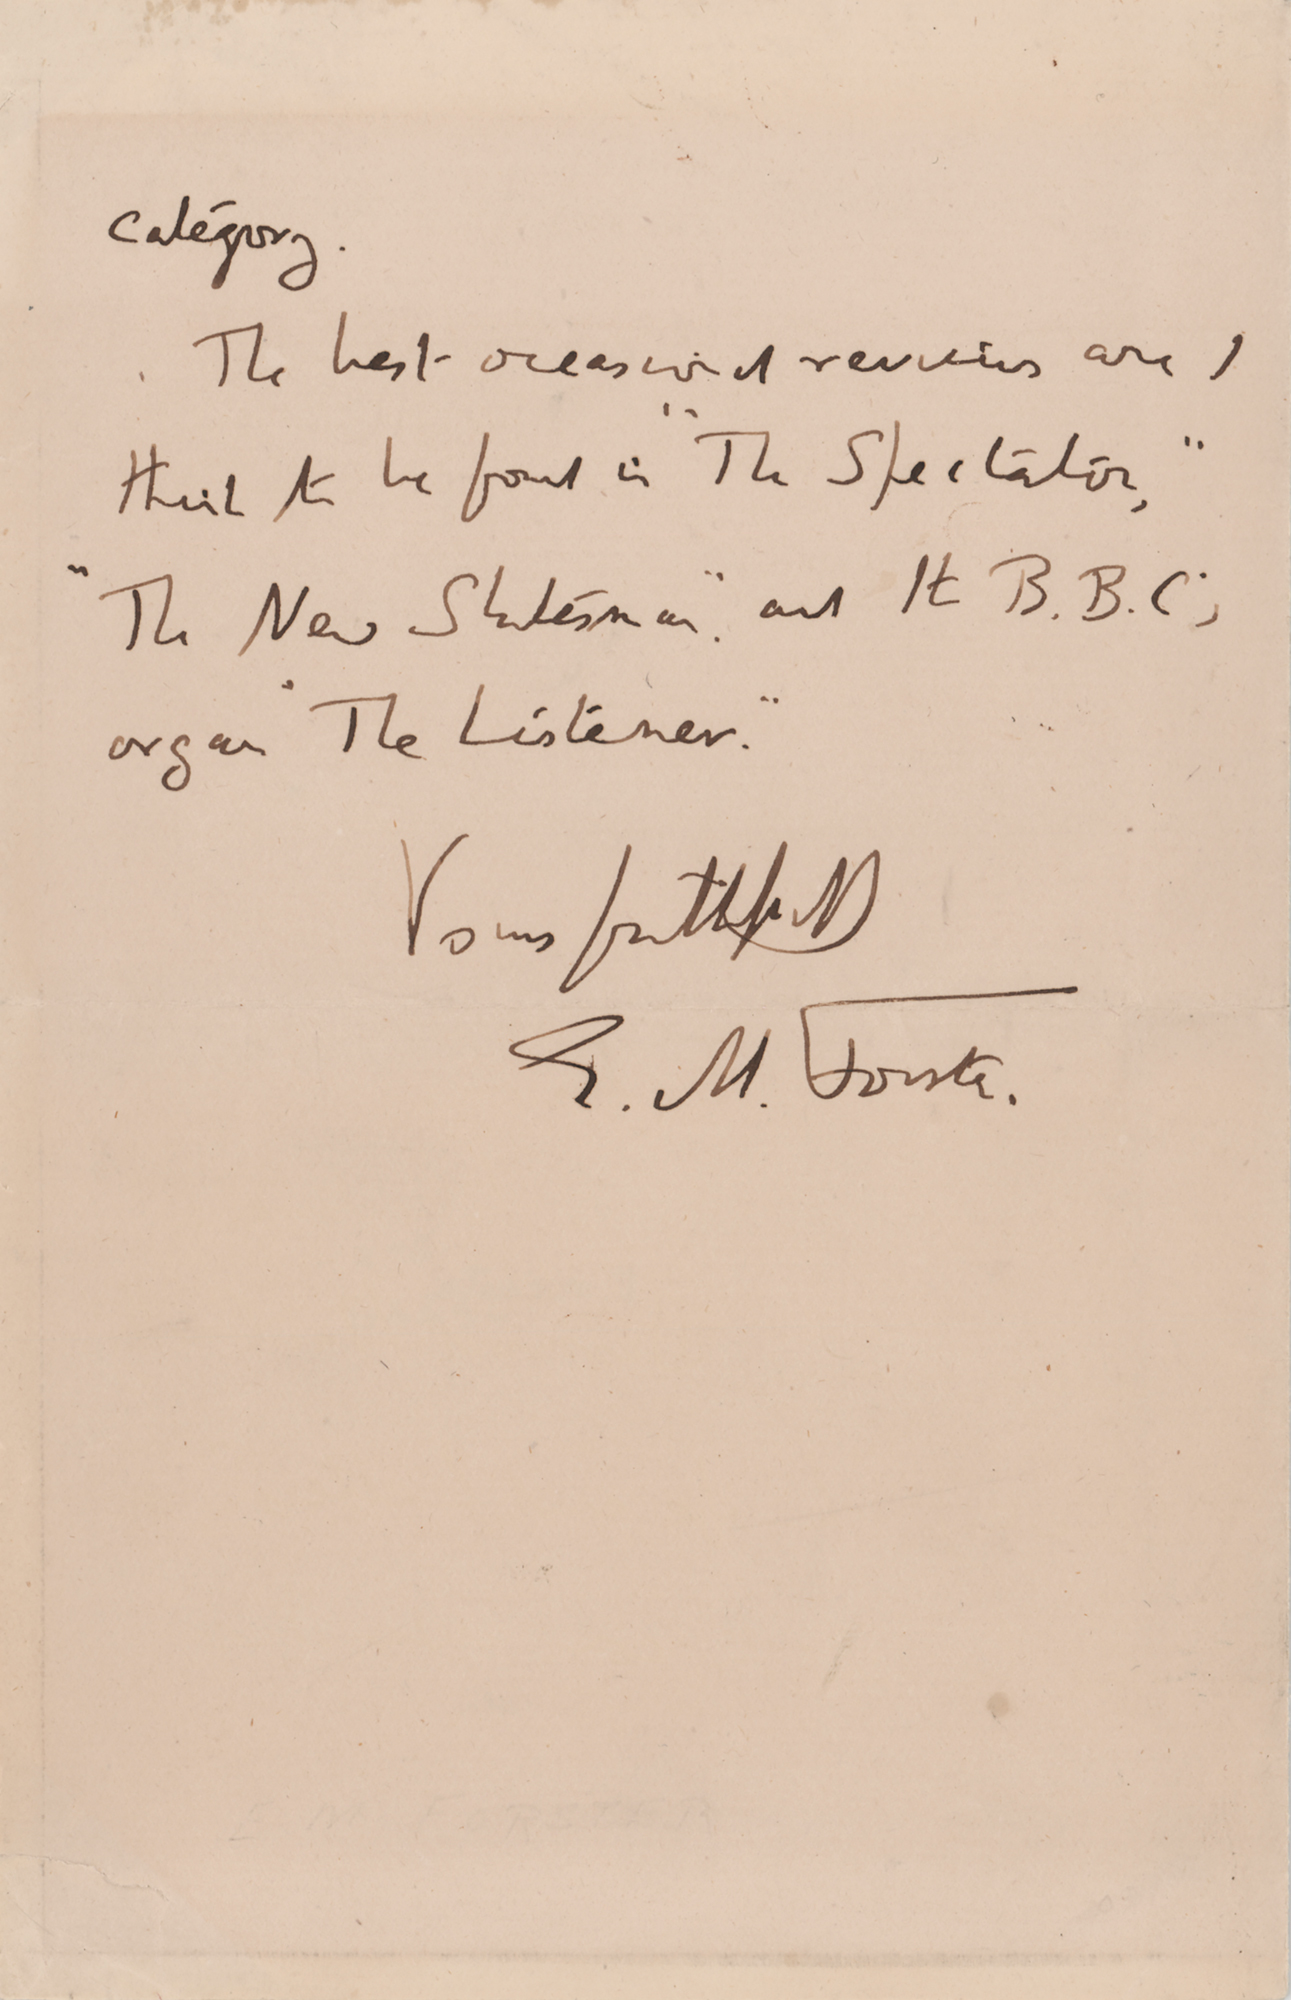 category.
The best occasional reviews are I
think to be found in "The Spectator,"
"The New Statesman". and the B.B.C's
organ "The Listener."
Yours faithfully
E. M. Forster.
E M FORSTER